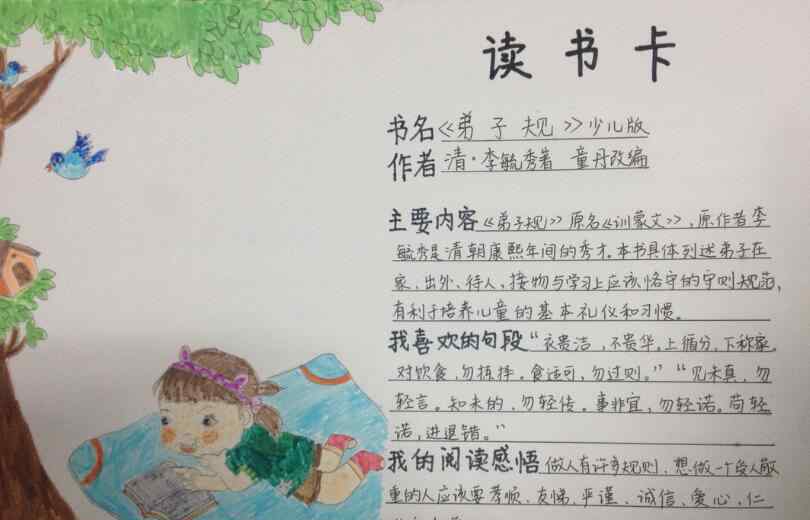 读书卡
书名《弟子规》少儿版
作者 清·李毓秀著 童丹改编
主要内容《弟子规》原名《训蒙文》,原作者李
毓秀是清朝康熙年间的秀才。本书具体列述弟子在
家、出外、待人、接物与学习上应该恪守的守则规范,
有利于培养儿童的基本礼仪和习惯。
我喜欢的句段“衣贵洁,不贵华,上循分,下称家。
对饮食,勿拣择。食适可,勿过则。”“见未真,勿
轻言。知未的,勿轻传。事非宜,勿轻诺。苟轻
诺,进退错。”
我的阅读感悟 做人有许多规则,想做一个受人敬
重的人应该要孝顺、友悌、严谨、诚信、爱心、仁